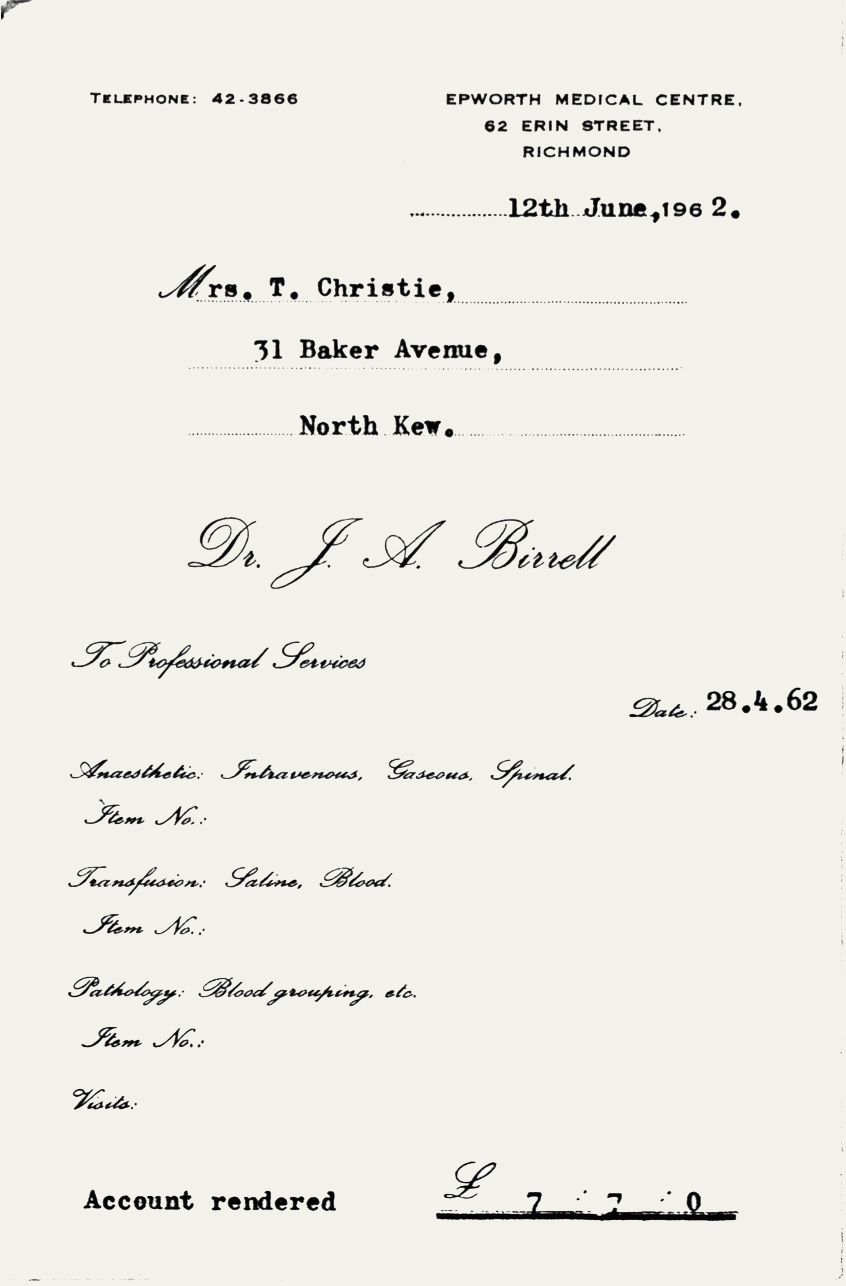 TELEPHONE: 42-3866
EPWORTH MEDICAL CENTRE,
62 ERIN STREET,
RICHMOND
12th June, 1962.
Mrs. T. Christie,
31 Baker Avenue,
North Kew.
Dr. J. A. Birrell
To Professional Services
Date: 28.4.62
Anaesthetic: Intravenous, Gaseous, Spinal.
Item No.:
Transfusion: Saline, Blood.
Item No.:
Pathology: Blood grouping, etc.
Item No.:
Visits:
Account rendered £ 7 : 7 : 0